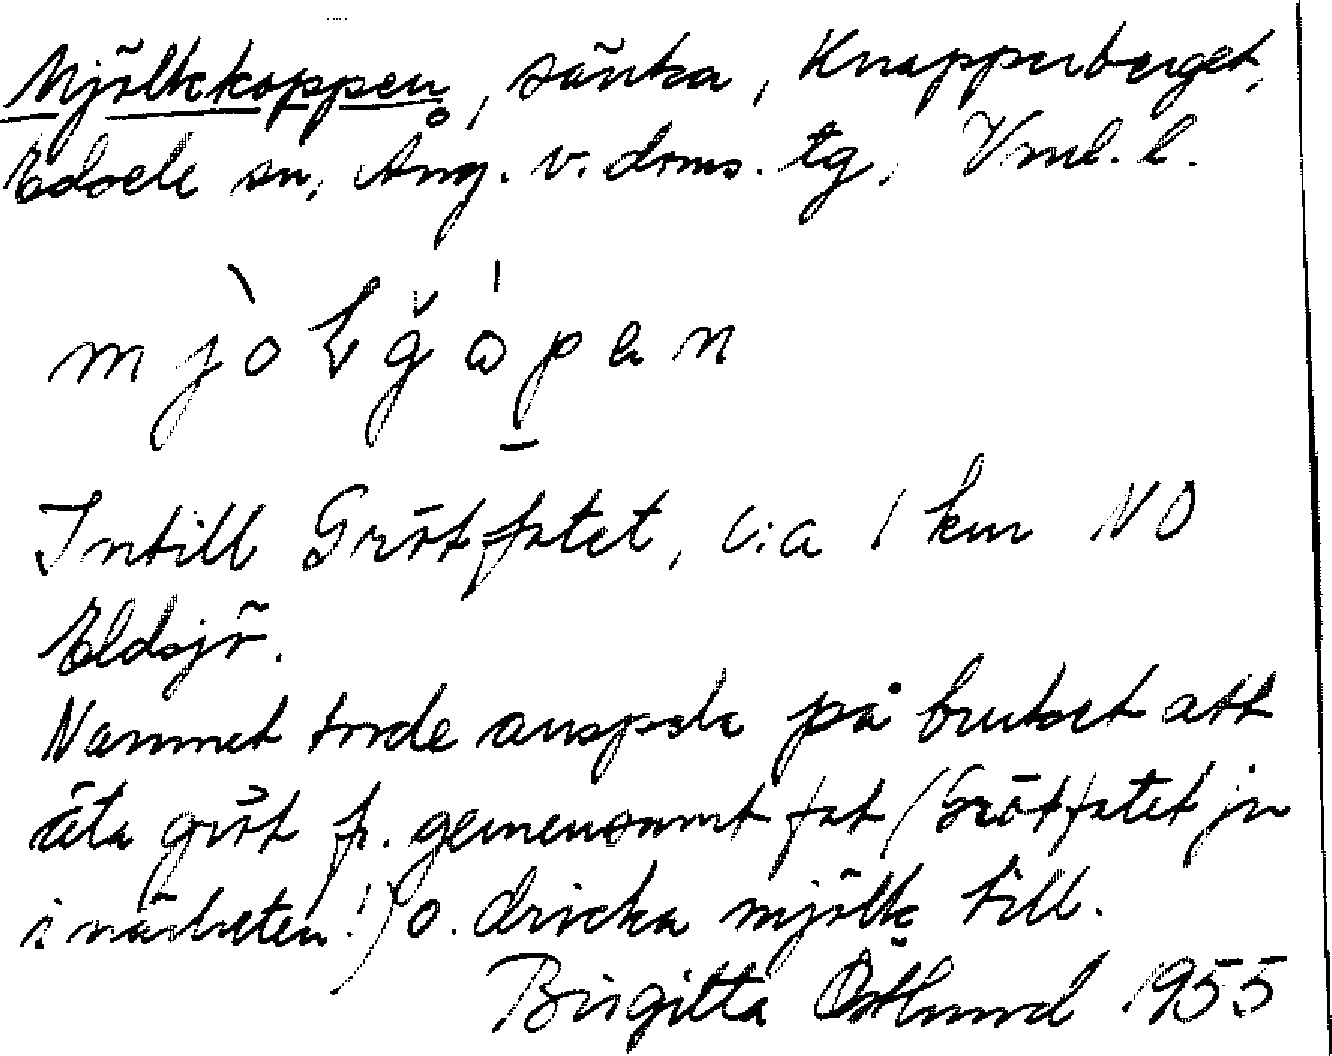 Mjölkkoppen, sänka, Knapperberget,
Edsele sn, Ång. v. doms. tg, Vnl. l.
mjòlgåpen
Intill Grötfatet, c:a 1 km NO
Eldsjö.
Namnet torde anspela på bruket att
äta gröt fr. gemensamt fat (Grötfatet ju
i närheten!) o. dricka mjölk till.
Birgitta Östlund 1955